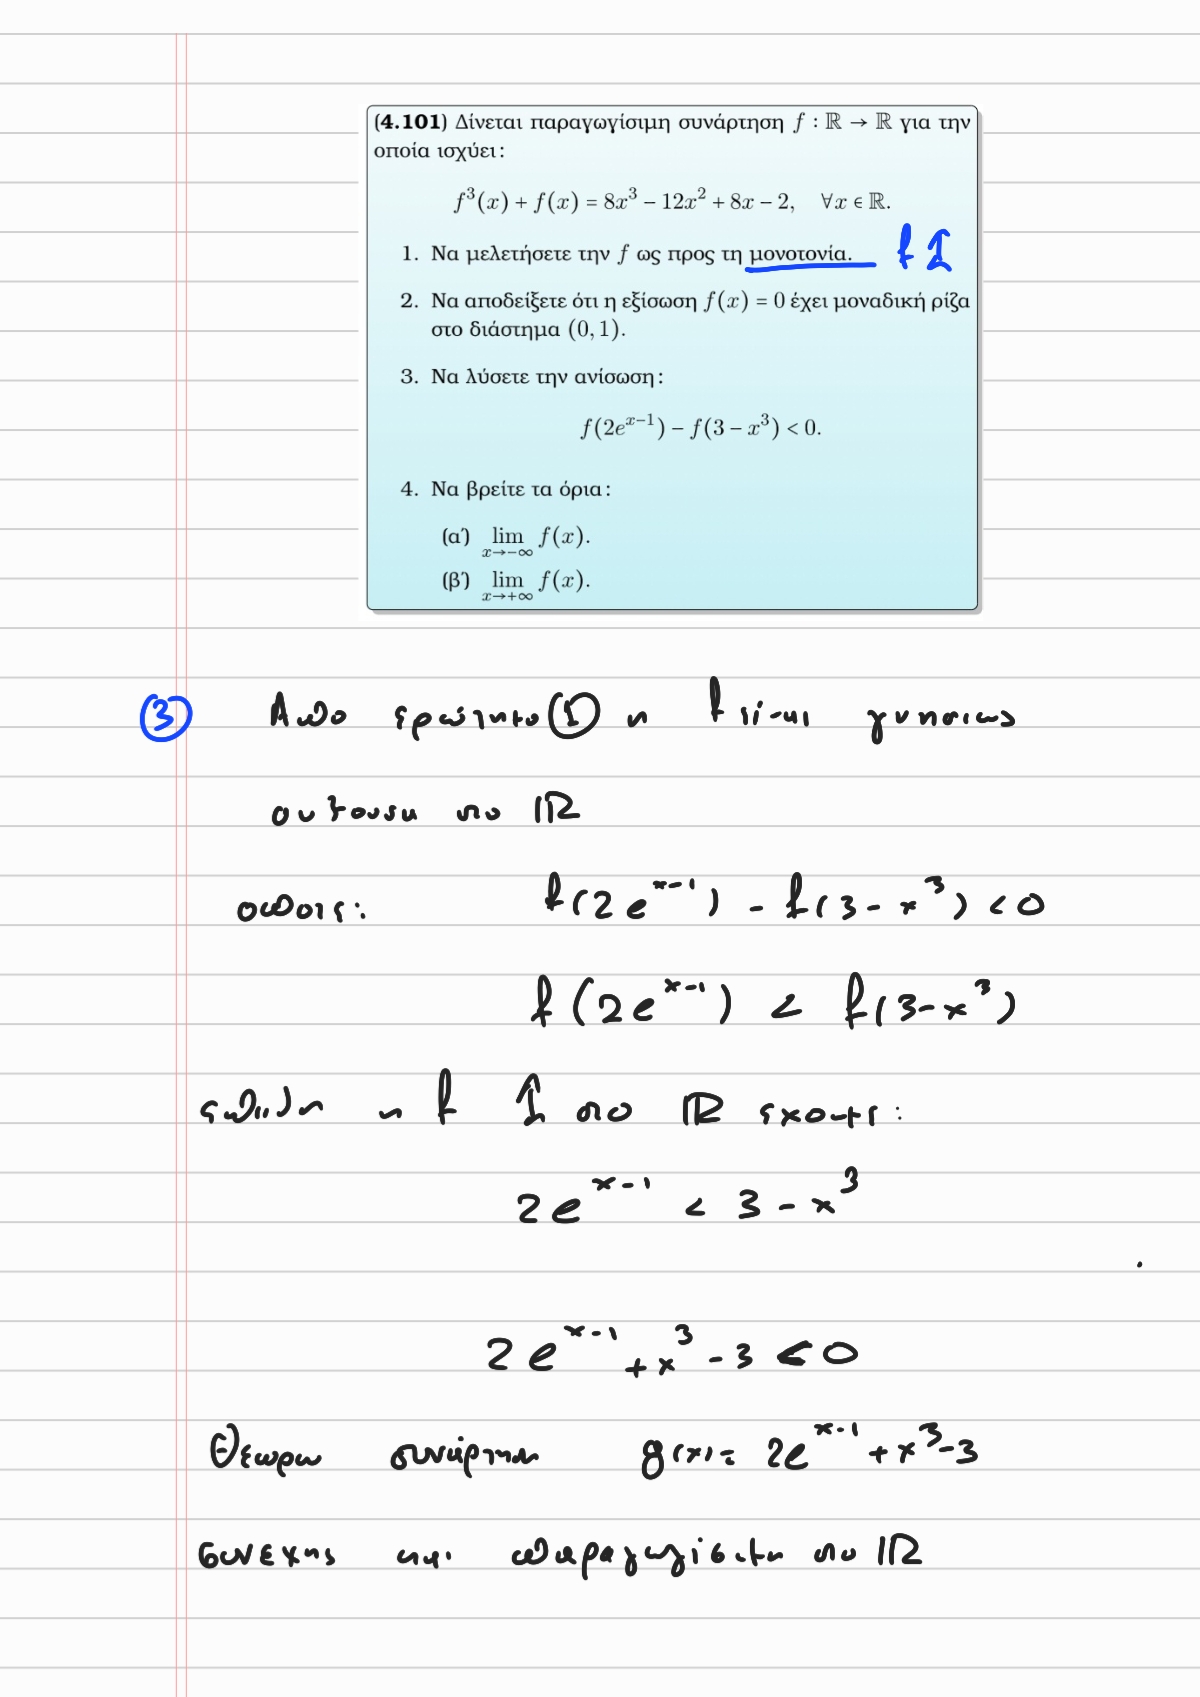 (4.101) Δίνεται παραγωγίσιμη συνάρτηση f : ℝ → ℝ για την
οποία ισχύει:
f³(x) + f(x) = 8x³ − 12x² + 8x − 2, ∀x ∈ ℝ.
1. Να μελετήσετε την f ως προς τη μονοτονία. f ↑
2. Να αποδείξετε ότι η εξίσωση f(x) = 0 έχει μοναδική ρίζα
στο διάστημα (0, 1).
3. Να λύσετε την ανίσωση:
f(2e^{x−1}) − f(3 − x³) < 0.
4. Να βρείτε τα όρια:
(α΄) lim_{x→−∞} f(x).
(β΄) lim_{x→+∞} f(x).
③ Απο ερώτημα ① η f είναι γνησιως
αυξουσα στο ℝ
οποτε: f(2e^{x-1}) - f(3-x³) < 0
f(2e^{x-1}) < f(3-x³)
επειδη η f ↑ στο ℝ εχουμε:
2e^{x-1} < 3 - x³
2e^{x-1} + x³ - 3 < 0
Θεωρω συνάρτηση g(x) = 2e^{x-1} + x³ - 3
συνεχης και παραγωγίσιμη στο ℝ